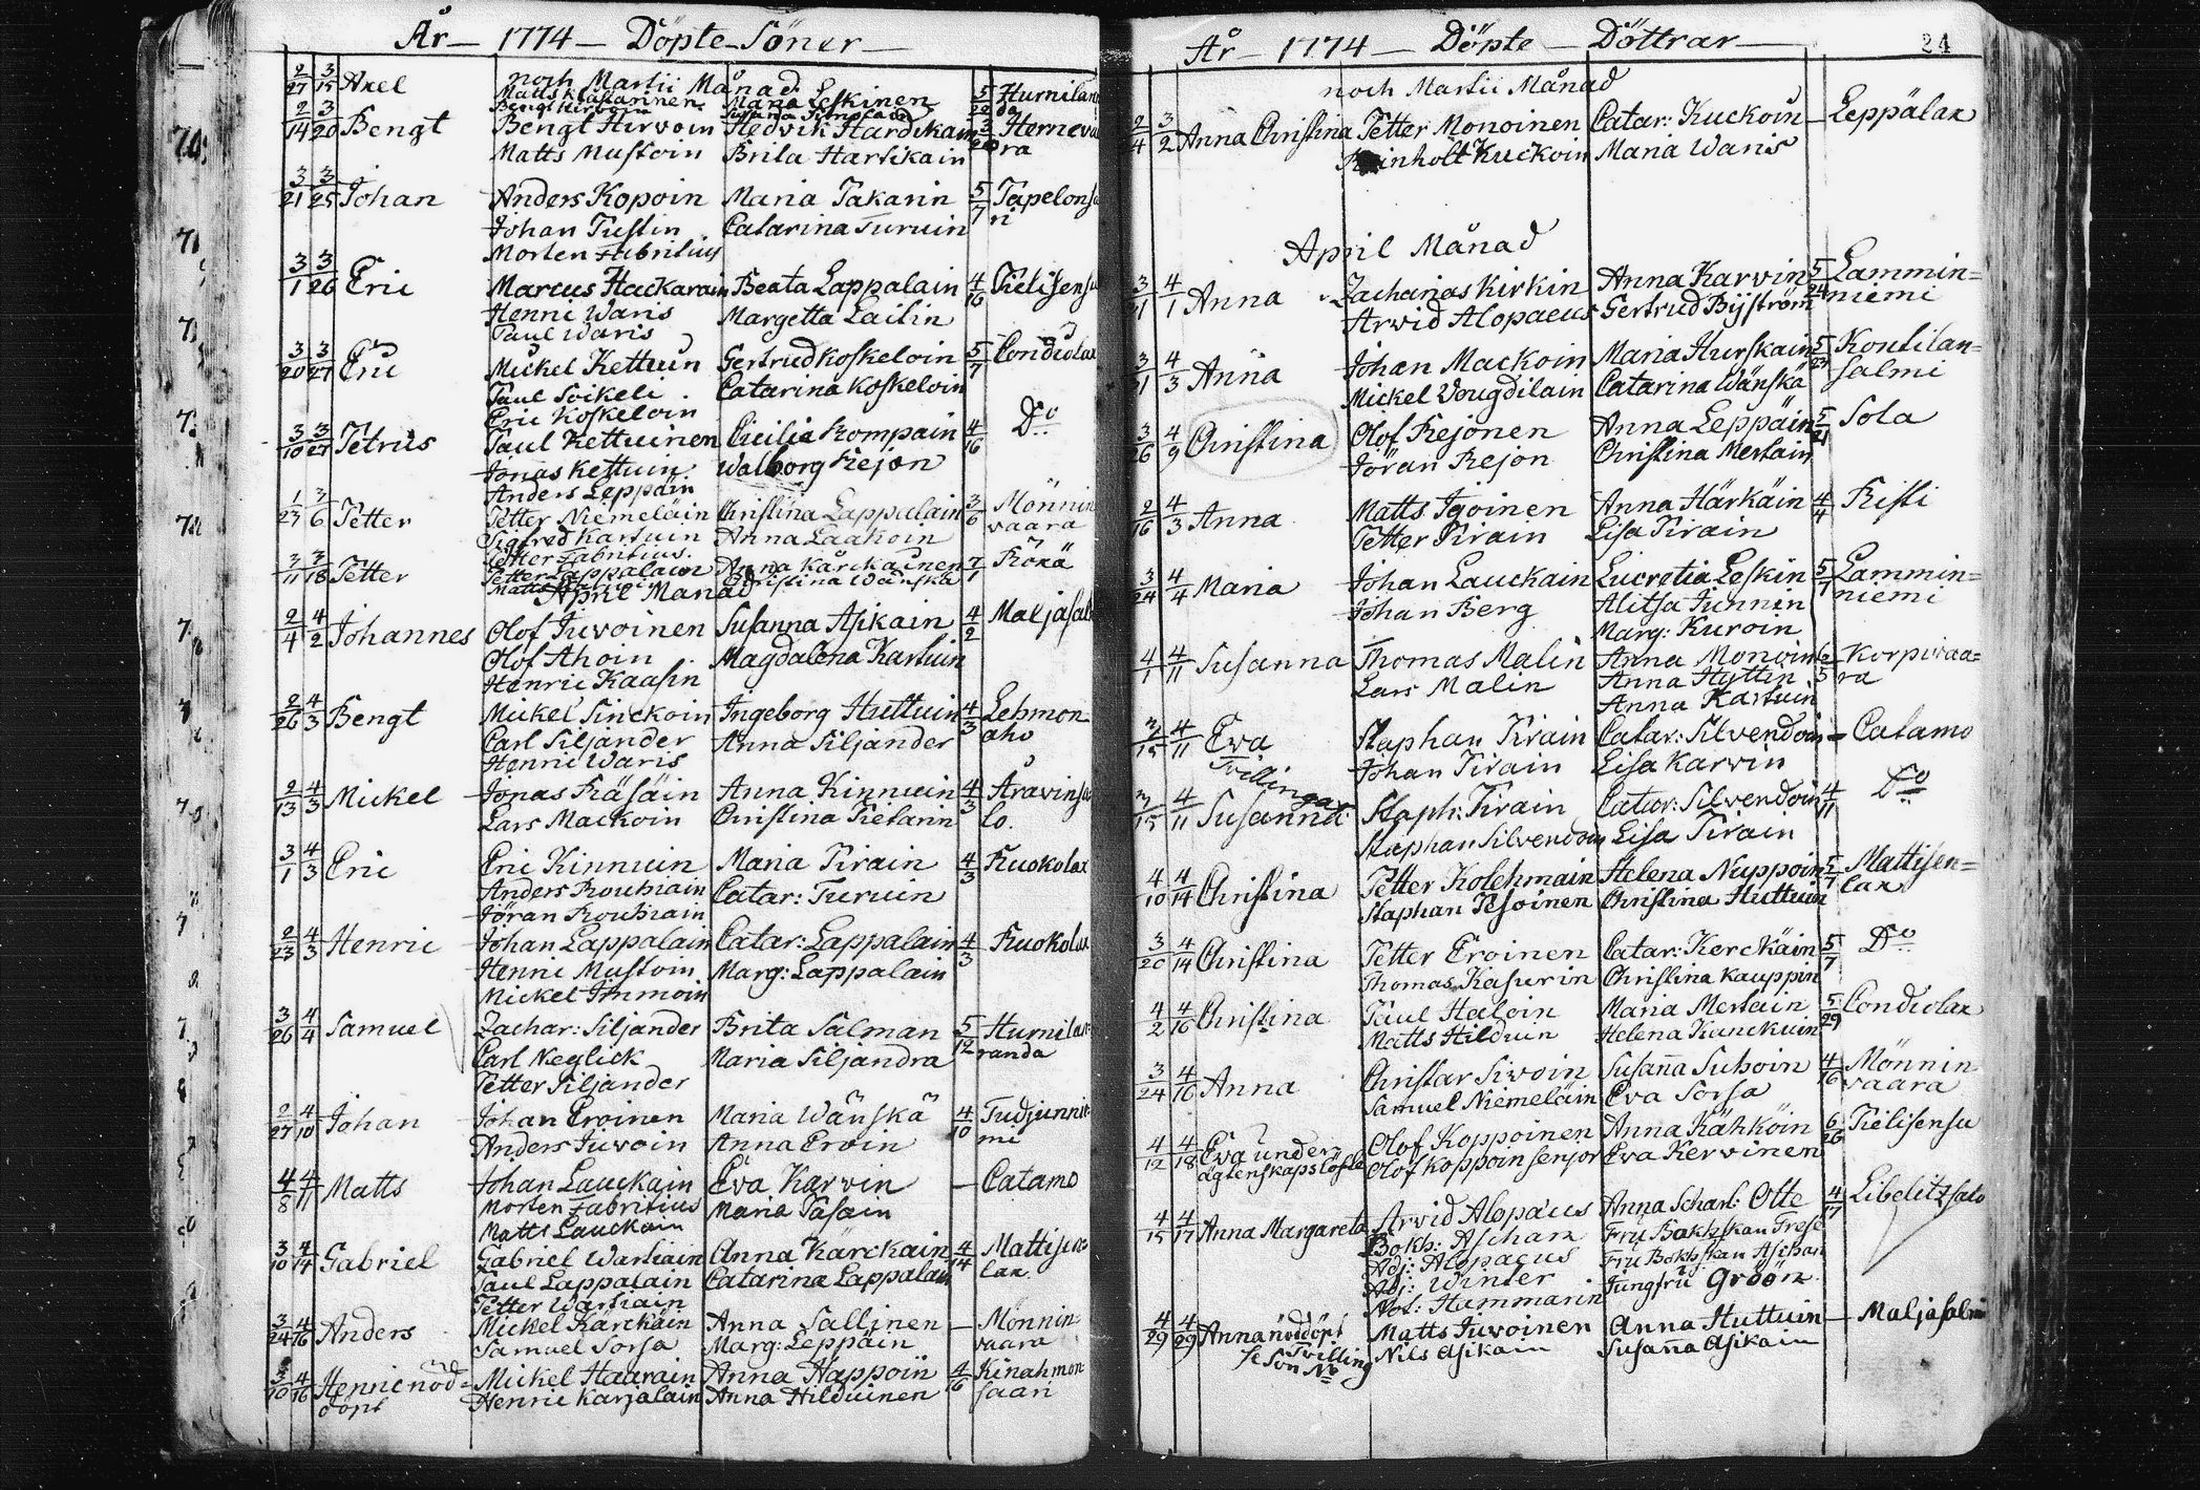 År — 1774 — Döpte Söner —
noch Martii Månad
2/27 3/15 Axel Maria Leskinen 5/22 Hurnilan
Bengt Hirvoin
2/14 3/20 Bengt Bengt Hirvoin Hedvik Hardikain Herneva
Matts Mustoin Brita Hartikain ra
3/21 3/25 Johan Anders Kopoin Maria Takarin 5/7 Tapelonsa
Johan Tustin Catarina Turuin ri
Morten Fabritius
3/1 3/26 Eric Marcus Hackarain Beata Lappalain 4/16 Pielisensu
Henric Waris Margetta Laitin
Paul Waris
3/20 3/27 Eric Mickel Kettuin Gertrud Koskeloin 5/7 Condiolax
Paul Soikeli Catarina Koskeloin
Eric Koskeloin
3/10 3/27 Petrus Paul Kettuinen Cicilia Kompain 4/16 Do
Jonas Kettuin Walborg Rejon
Anders Leppäin
1/23 3/6 Petter Petter Niemeläin Christina Lappalain 3/6 Mönnin
Sigfred Kartuin Anna Laakoin vaara
Petter Fabritius
3/11 3/18 Petter Petter Lappalain Anna Kärckäinen 7/1 Röxä
Christina Wänskä
April Månad
2/4 4/2 Johannes Olof Juvoinen Susanna Asikain 4/2 Maljasal
Olof Ahoin Magdalena Kartuin
Henric Kaasin
2/26 4/3 Bengt Mickel Sinckoin Ingeborg Huttuin 4/3 Lehmon
Carl Siljander Anna Siljander aho
Henric Waris
2/13 4/3 Mickel Jonas Räsäin Anna Kinnuin 4/3 Åravinsa
Lars Mackoin Christina Pietarin lo.
3/1 4/3 Eric Eric Kinnuin Maria Pirain 4/3 Ruokolax
Anders Rouhiain Catar: Turuin
Jöran Rouhiain
2/23 4/3 Henric Johan Lappalain Catar: Lappalain 4/3 Ruokolax
Henric Mustoin Marg: Lappalain
Mickel Immoin
3/26 4/4 Samuel Zachar: Siljander Brita Salman 5/12 Hurnilax
Carl Neglick Maria Siljandra randa
Petter Siljander
2/27 4/10 Johan Johan Eroinen Maria Wänskä 4/10 Tudjunnie
Anders Juvoin Anna Eroin mi
4/8 4/11 Matts Johan Lauckain Eva Karvin — Catamo
Morten Fabritius Maria Pasain
Matts Lauckain
3/10 4/14 Gabriel Gabriel Wartiain Anna Kärckäin 4/14 Mattisen
Paul Lappalain Catarina Lappalain lax
Petter Wartiain
3/24 4/16 Anders Mickel Kärckäin Anna Sallinen — Mönnin
Samuel Sorsa Marg: Leppäin vaara
3/10 4/16 Henric nöd= Mickel Haarain Anna Happoin 4/16 Kinahmon
döpt Henric Karjalain Anna Hilduinen saari
År — 1774 — Döpte — Döttrar — 24
noch Martii Månad
2/4 3/2 Anna Christina Petter Monoinen Catar: Kuckoin — Leppälax
Reinholt Kuckoin Maria Waris
April Månad
3/31 4/1 Anna Zacharias Kirkin Anna Karvin 5/24 Lammin=
Arvid Alopaeus Gertrud Bijström niemi
3/31 4/3 Anna Johan Mackoin Maria Hurskain 5/23 Kontilan=
Mickel Vougdilain Catarina Wänskä salmi
3/26 4/9 Christina Olof Rejonen Anna Leppäin 5/21 Sola
Jöran Rejon Christina Mertain
2/16 4/3 Anna Matts Igoinen Anna Härkäin 4/4 Risti
Petter Pirain Lisa Pirain
3/24 4/4 Maria Johan Lauckain Lucretia Leskin 5/7 Lammin=
Johan Berg Alitsa Junnin niemi
Marg: Kuroin
4/1 4/11 Susanna Thomas Malin Anna Monoin 6/5 Korpivaa=
Lars Malin Anna Hyttin ra
Anna Kartuin
3/15 4/11 Eva Staphan Pirain Catar: Silvendoin — Catamo
Tvillingar Johan Pirain Lisa Karvin
3/15 4/11 Susanna Staph: Pirain Catar: Silvendoin 4/11 Do
Staphan Silvendoin Lisa Pirain
4/10 4/14 Christina Petter Kolehmain Helena Nuppoin 5/7 Mattisen=
Staphan Pesoinen Christina Huttuin lax
3/20 4/14 Christina Petter Eroinen Catar: Kerckäin 5/7 Do
Thomas Kasurin Christina Kauppin
4/2 4/16 Christina Paul Haloin Maria Mertain 5/29 Condiolax
Matts Hilduin Helena Kanckuin
3/24 4/16 Anna Christar Sivoin Susanna Suhoin 4/16 Mönnin
Samuel Niemeläin Eva Sorsa vaara
4/12 4/18 Eva under Olof Koppoinen Anna Kähköin 6/26 Pielisensu
ägtenskapslöfte Olof Koppoin senjor Eva Kervinen
4/15 4/17 Anna Margareta Arvid Alopaeus Anna Scharl: Otte 4/17 Libelitz sato
Bokh: Aschan Fru Bokhskan Frese
Adj: Alopaeus Fru Bokhskan Aschan
Adj: Winter Jungfru Gröön
Not: Hammarin
4/29 4/29 Anna nöddöpt Matts Juvoinen Anna Huttuin — Maljasalmi
Tvilling Nils Asikain Susanna Asikain
se Son No